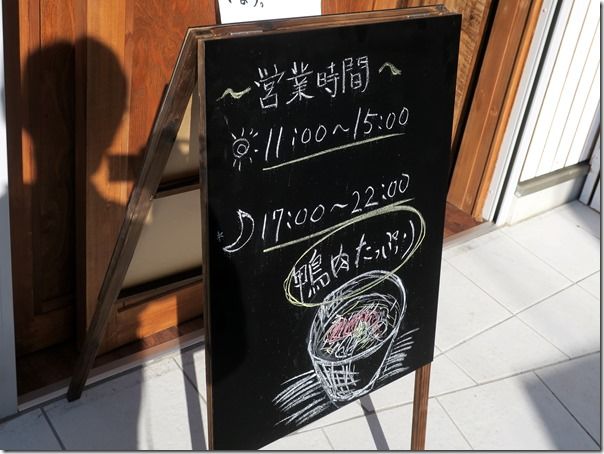 ～営業時間～
11:00～15:00
17:00～22:00
鴨肉たっぷり